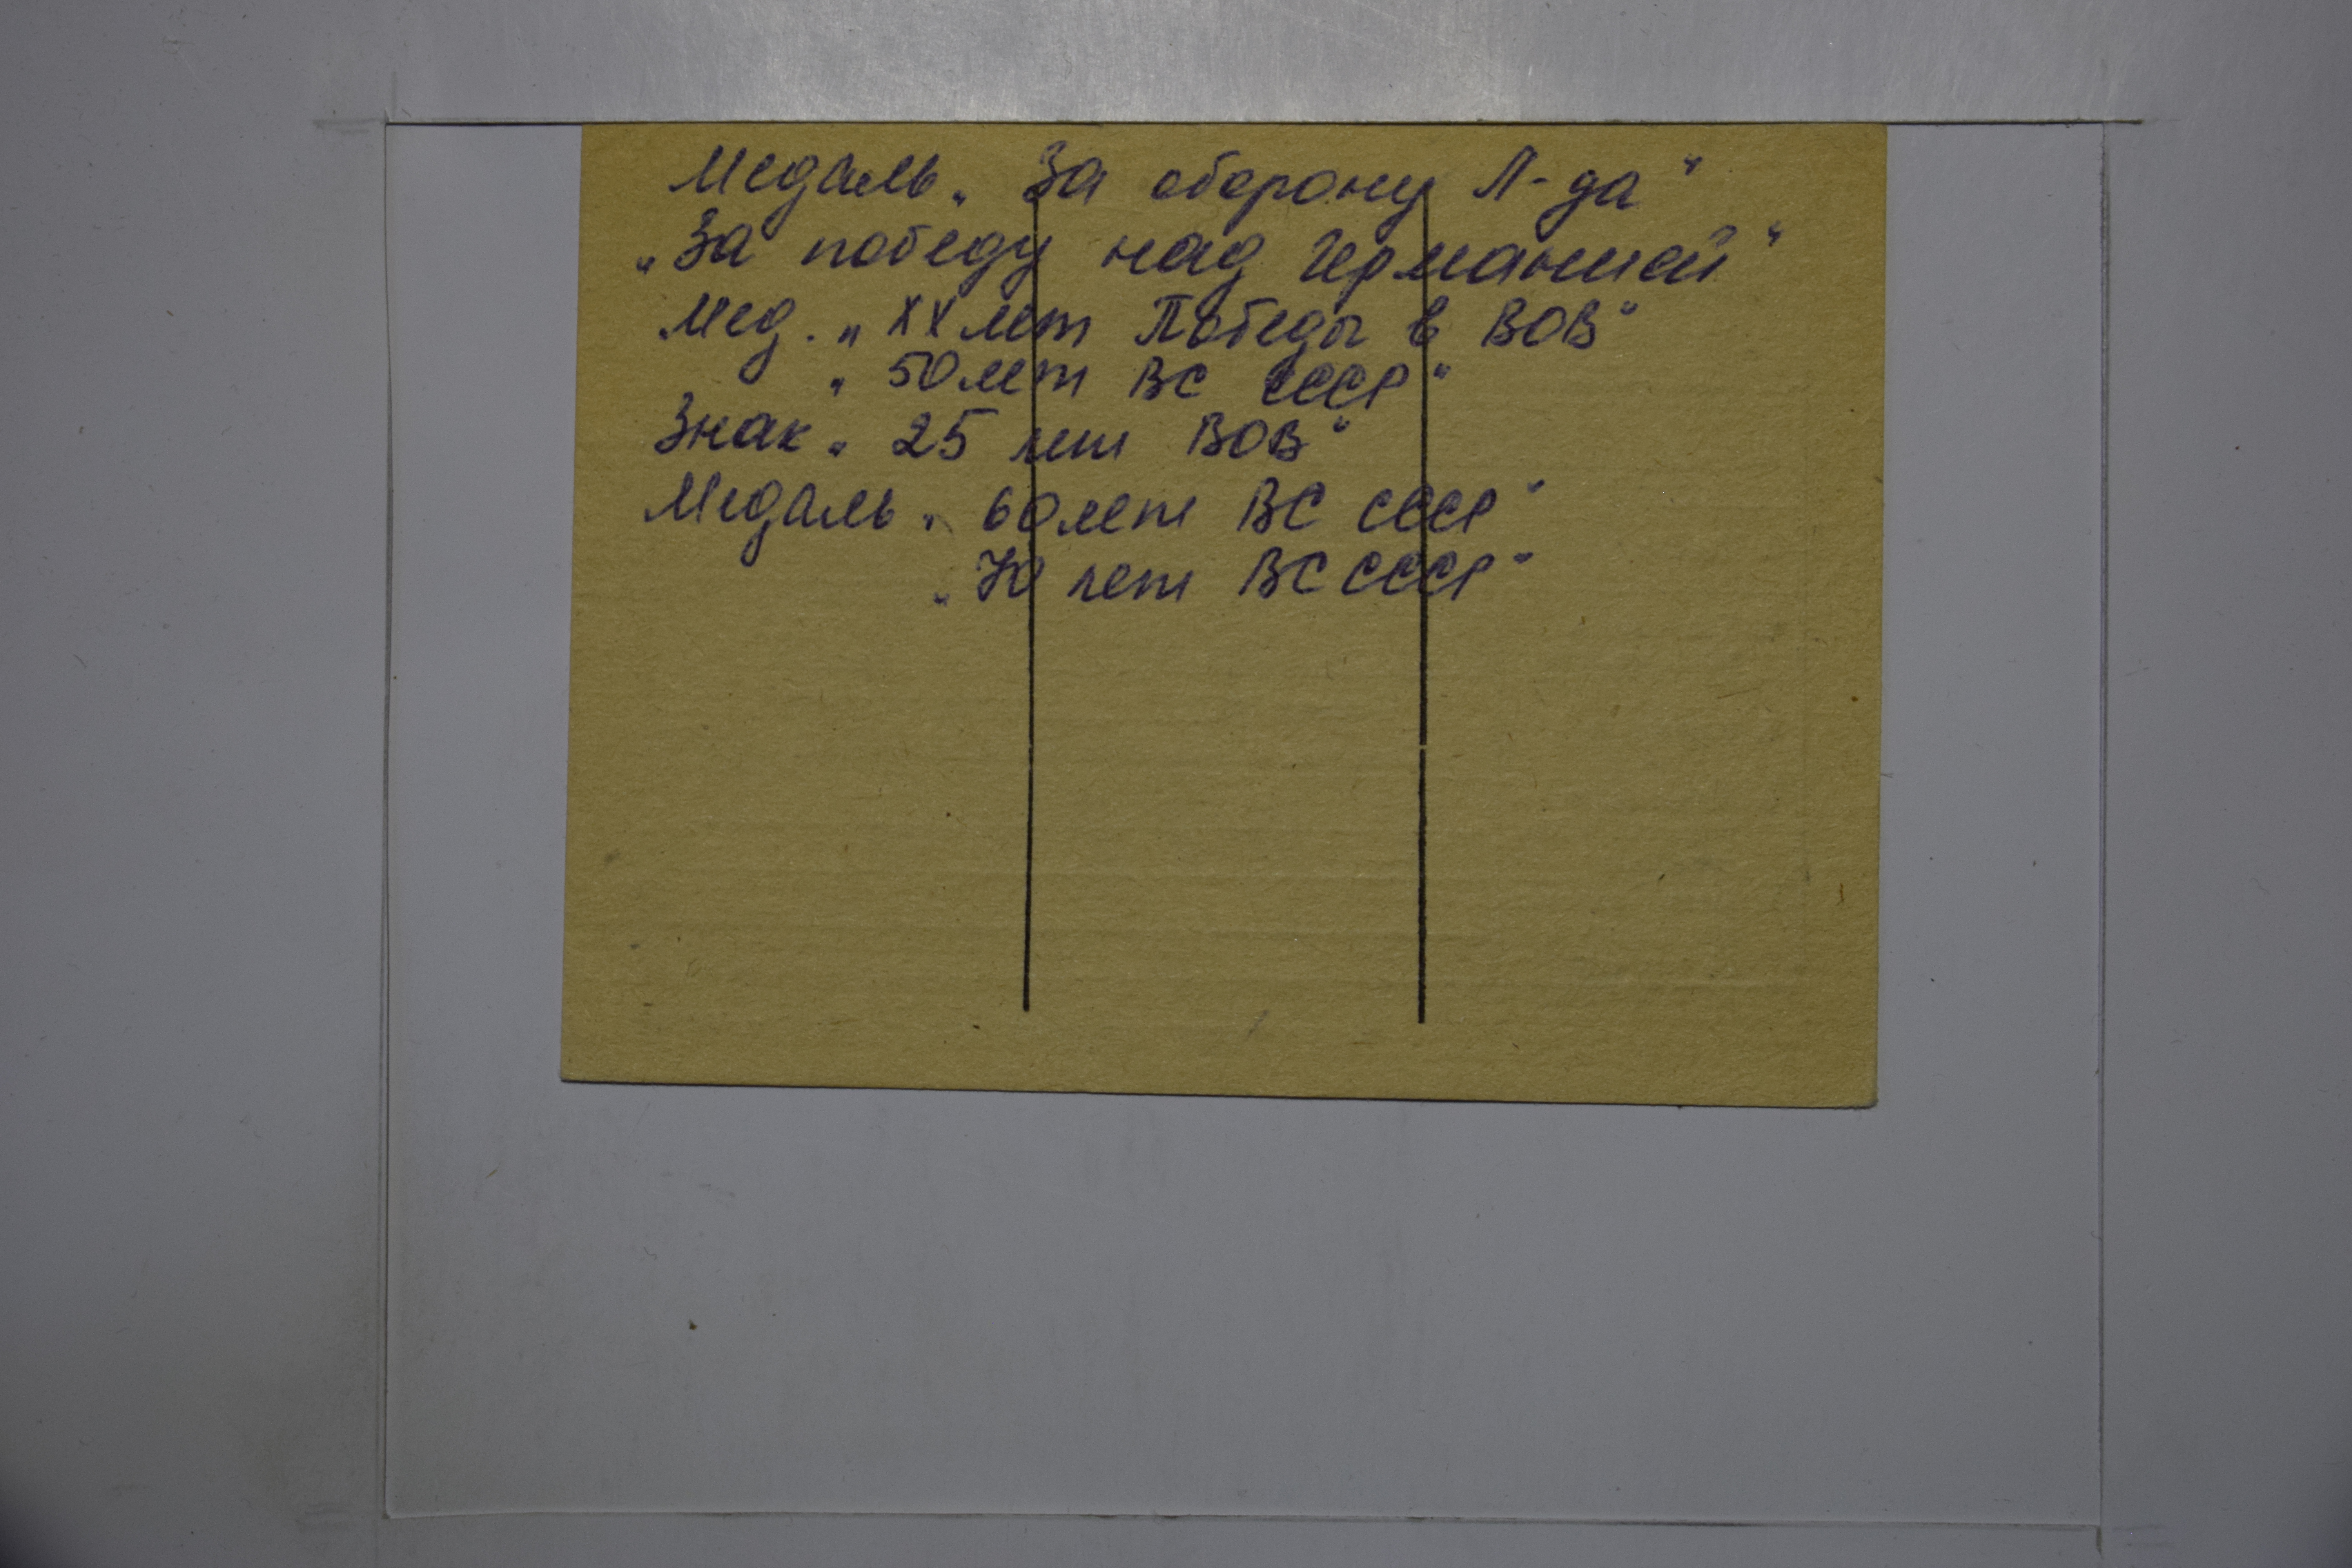 Медаль „За оборону Л-да"
„За победу над Германией"
Мед. „ХХ лет Победы в ВОВ"
„50 лет ВС СССР"
Знак „25 лет ВОВ"
Медаль „60 лет ВС СССР"
„70 лет ВС СССР"